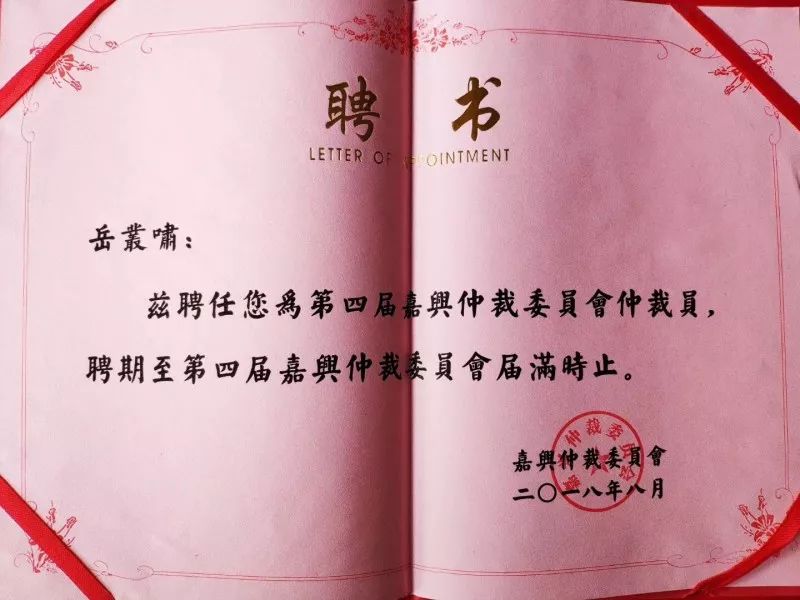 聘书
LETTER OF APPOINTMENT
岳叢嘯：
兹聘任您為第四届嘉興仲裁委員會仲裁員，
聘期至第四届嘉興仲裁委員會届滿時止。
嘉興仲裁委員會
二〇一八年八月